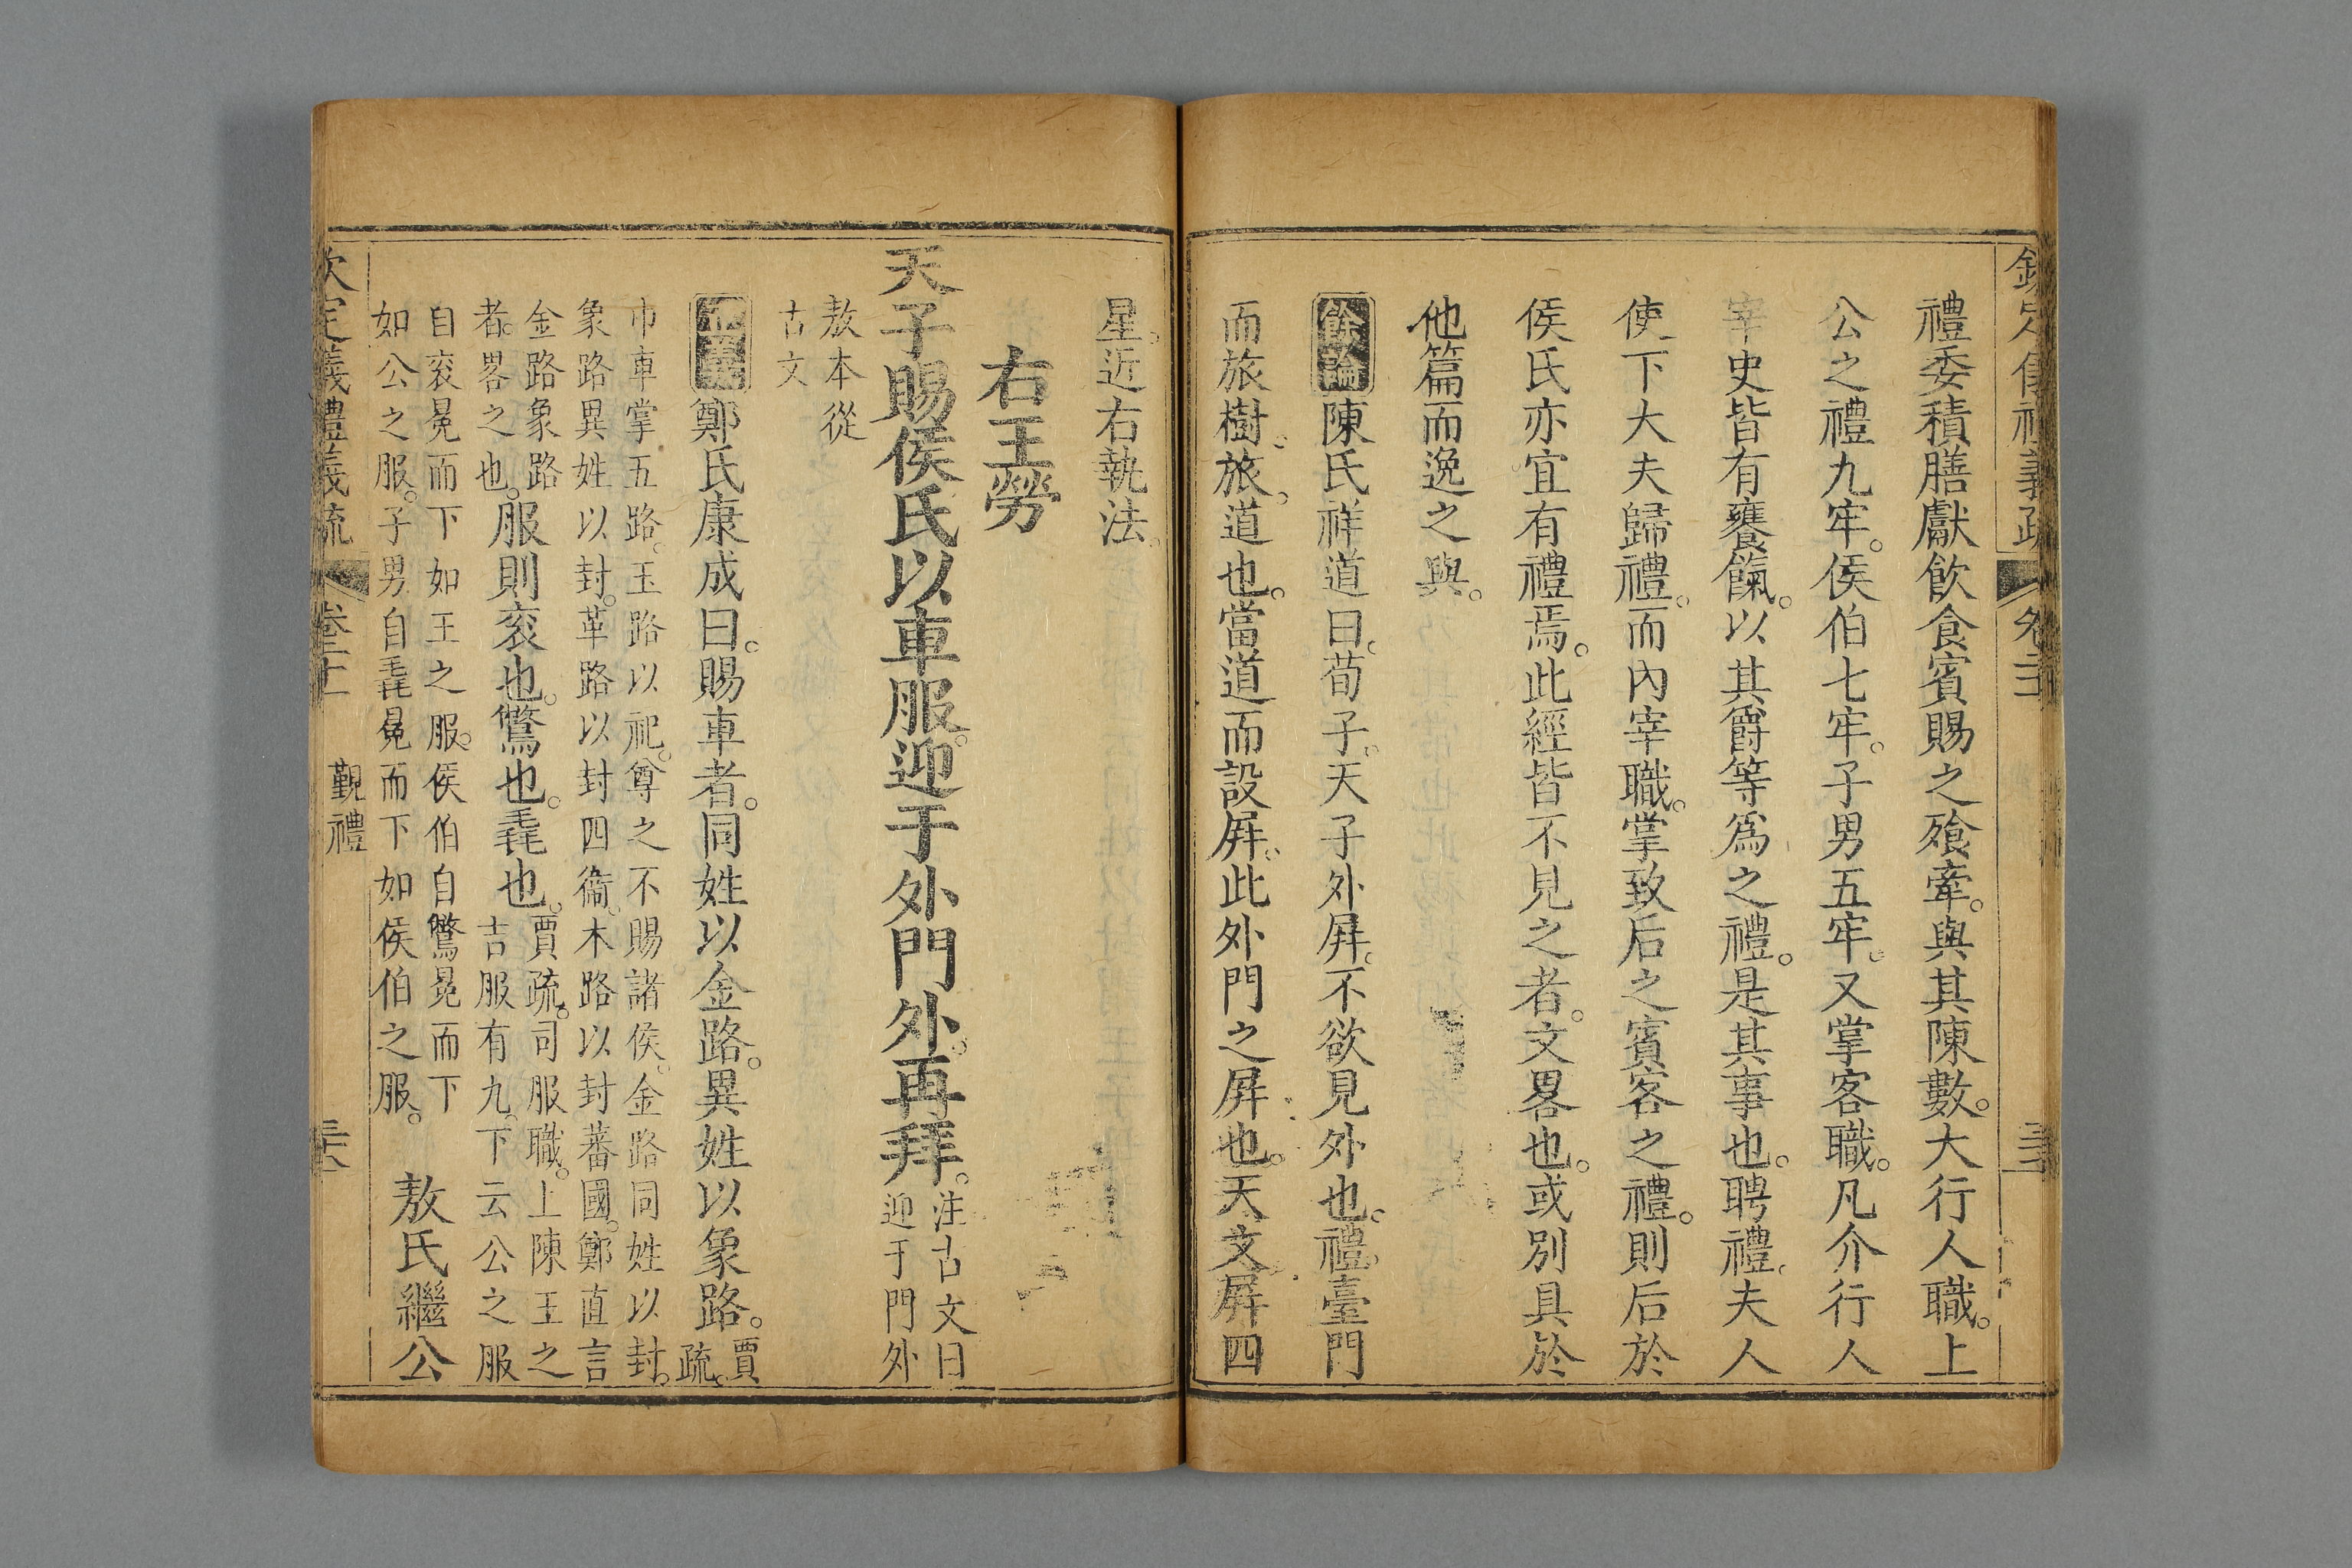 禮委積膳獻飲食賓賜之飱牽。與其陳數。大行人職。上
公之禮九牢。侯伯七牢。子男五牢。又掌客職。凡介行人
宰史皆有饔餼。以其爵等爲之禮。是其事也。聘禮。夫人
使下大夫歸禮。而內宰職。掌致后之賓客之禮。則后於
侯氏亦宜有禮焉。此經皆不見之者。文畧也。或別具於
他篇而逸之與。
餘論陳氏祥道曰。荀子。天子外屏。不欲見外也。禮。臺門
而旅樹。旅。道也。當道而設屏。此外門之屏也。天文屏四
星。近右執法。
右王勞
天子賜侯氏以車服。迎于外門外。再拜。注古文曰
迎于門外
敖本從
古文
正義鄭氏康成曰。賜車者。同姓以金路。異姓以象路。賈
疏。
巾車掌五路。玉路以祀。尊之不賜諸侯。金路同姓以封。
象路異姓以封。革路以封四衞。木路以封蕃國。鄭直言
金路象路
者。畧之也。服則衮也。鷩也。毳也。賈疏。司服職。上陳王之
吉服有九。下云公之服
自衮冕而下如王之服。侯伯自鷩冕而下
如公之服。子男自毳冕而下如侯伯之服。敖氏繼公
欽定義禮義疏
覲禮